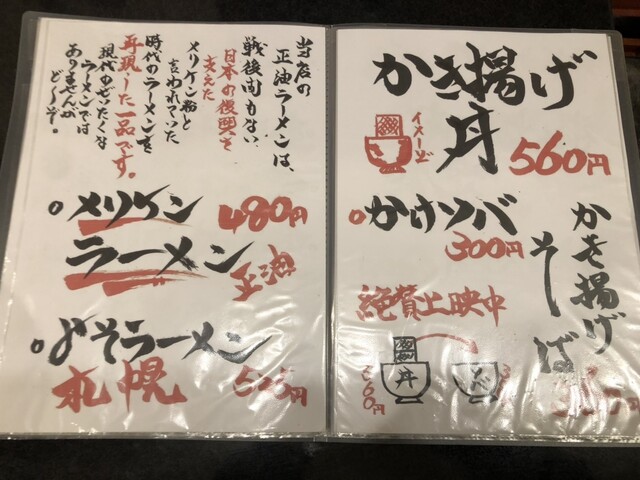 当店の
正油ラーメンは、
戦後間もない
日本の復興を
支えた
メリケン粉と
言われていた
時代のラーメンを
再現した一品です。
現代のぜいたくな
ラーメンでは
ありませんが
ど〜ぞ。
メリケン
ラーメン
480円
正油
みそラーメン
札幌
かき揚げ
丼
560円
イメージ
かけソバ
300円
かき揚げ
そば
絶賛上映中
丼
560円
ソバ